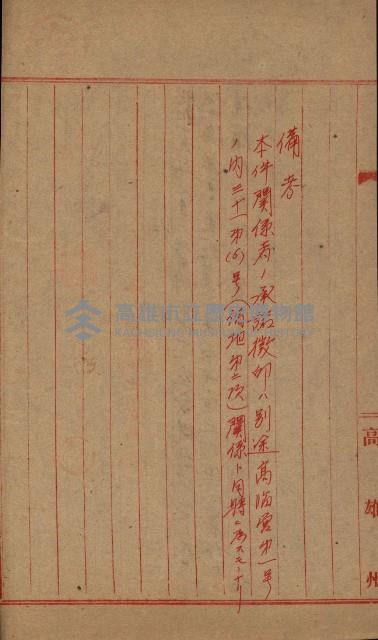 備考
本件関係者ノ承認徴印ハ別途高臨営第一号
ノ内三十一第(6)号(第二次)関係ト同時ニ為スモノナリ
高雄州
高雄市立歷史博物館
KAOHSIUNG MUSEUM OF HISTORY